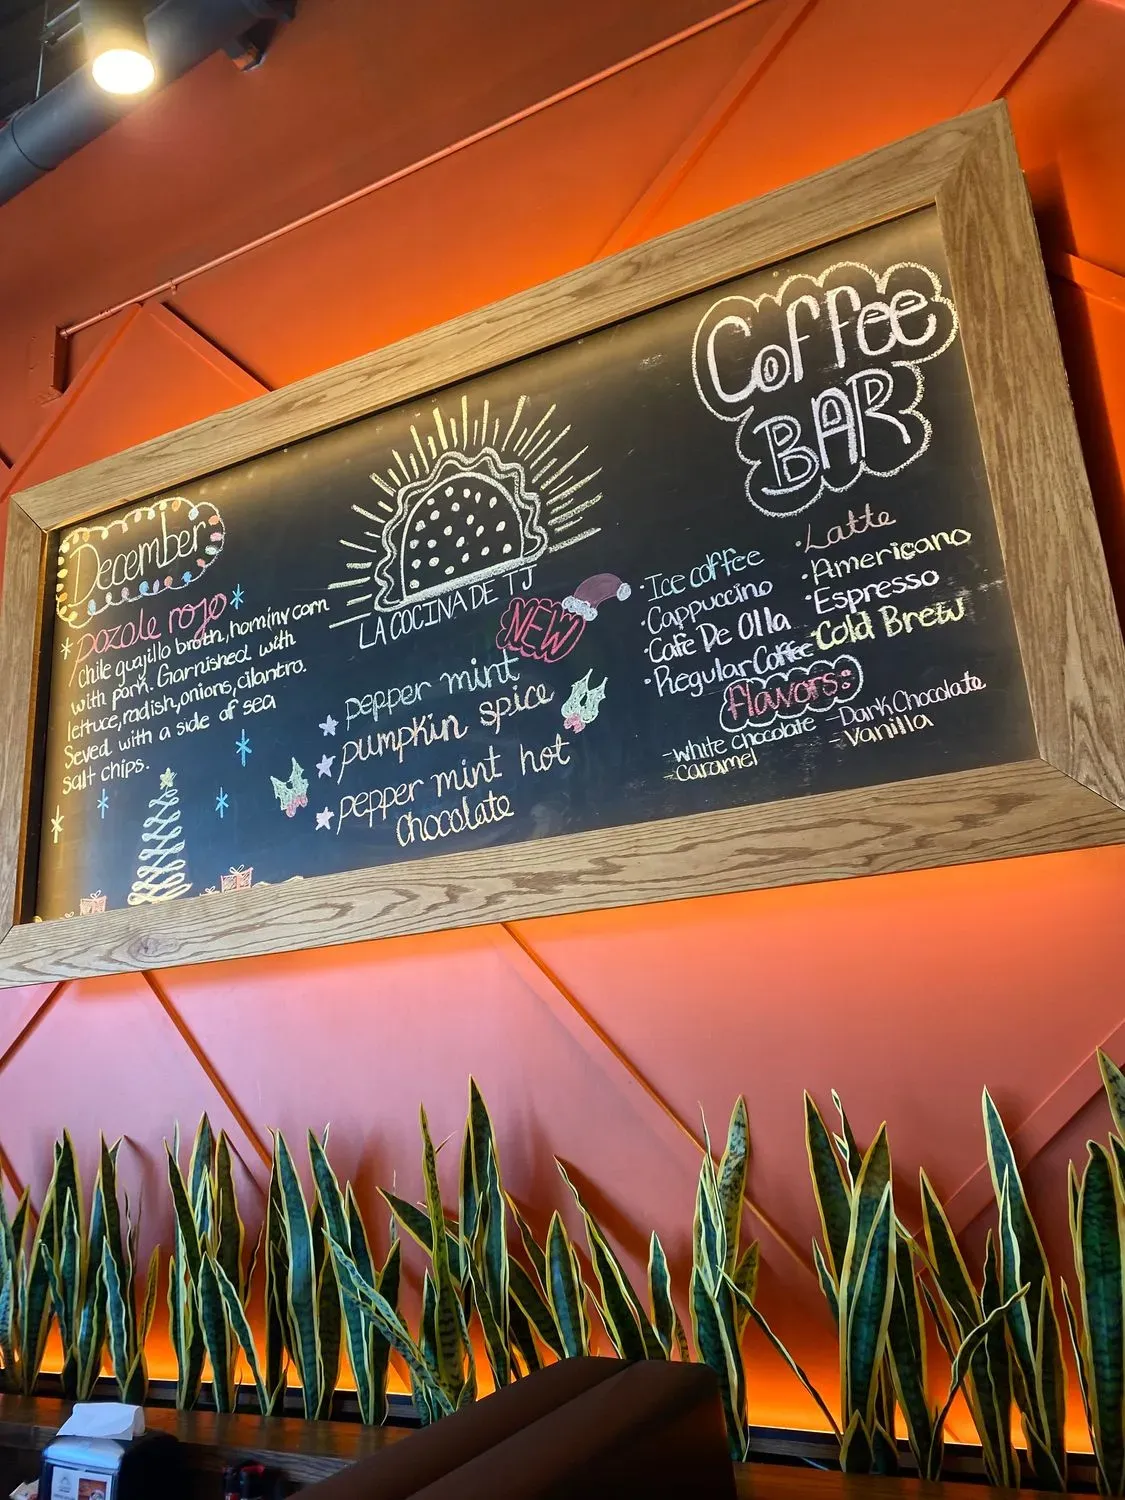 December
pozole rojo
chile guajillo broth, hominy corn
with pork. Garnished with
lettuce, radish, onions, cilantro.
Seved with a side of sea
salt chips.
LA COCINA DE TJ
NEW
pepper mint
pumpkin spice
pepper mint hot
chocolate
Coffee
BAR
· Ice coffee
· Cappuccino
· Cafe De Olla
· Regular Coffee
· Latte
· Americano
· Espresso
· Cold Brew
flavors:
-white chocolate
-caramel
-Dark Chocolate
-Vanilla